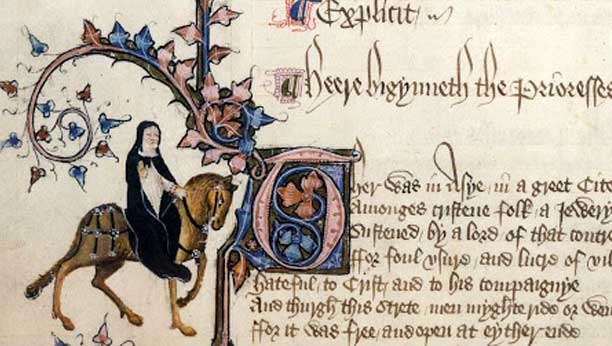 Explicit
Heere bigynneth the Prioresses
Ther was in Asye in a greet Citee
Amonges cristene folk a Jewerye
Sustened by a lord of that contree
ffor foul vsure and lucre of vil
hateful to Crist and to his compaignye
And thurgh this strete men myghte ride or wen
ffor it was free and open at eyther ende